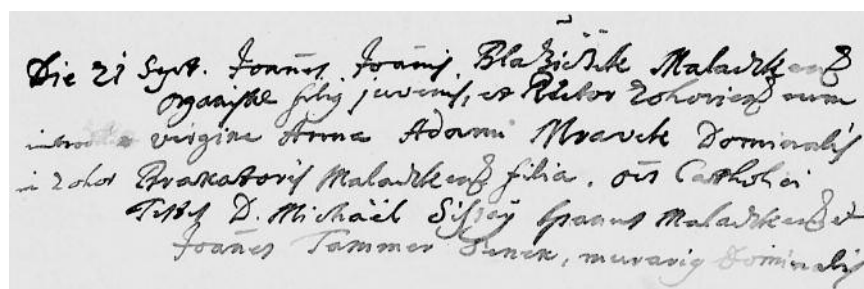 Die 21 Sept. Joannes Joannis Blažiček Malaczkens
organistæ filius juvenis, et Rector Zohoriens cum
introducta virgine Anna Adami Mravek Dominalis
in Zohor Braxatoris Malaczkens filia. oes Catholici
Testes D. Michaël Spanus Malaczkens et
Joannes Tammer murarius Dominalis